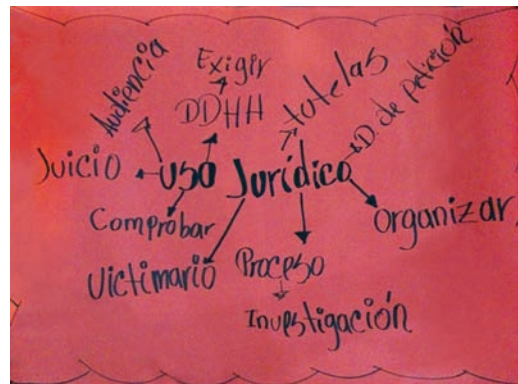 Audiencia
Exigir
DDHH
tutelas
D. de petición
Juicio
uso Jurídico
Comprobar
Organizar
Victimario
Proceso
Investigación